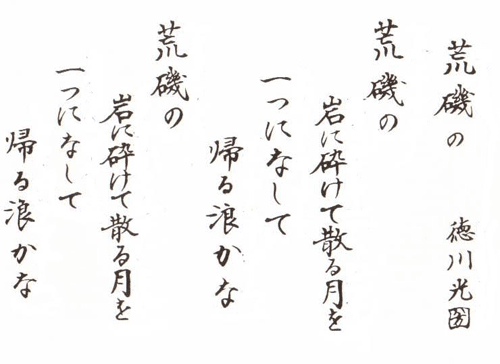 荒磯の 徳川光圀
荒磯の
岩に砕けて散る月を
一つになして
帰る浪かな
荒磯の
岩に砕けて散る月を
一つになして
帰る浪かな